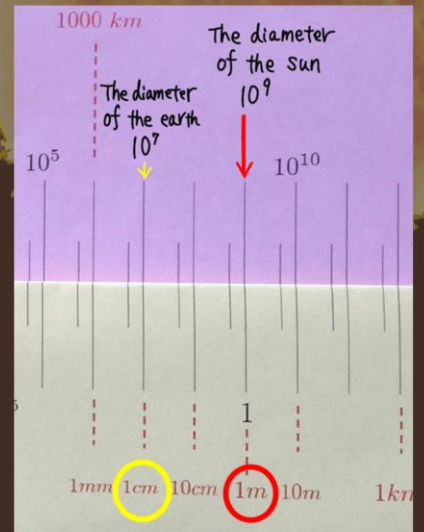 1000 km
The diameter
of the sun
10⁹
The diameter
of the earth
10⁷
10⁵
10¹⁰
1
1mm 1cm 10cm 1m 10m 1km